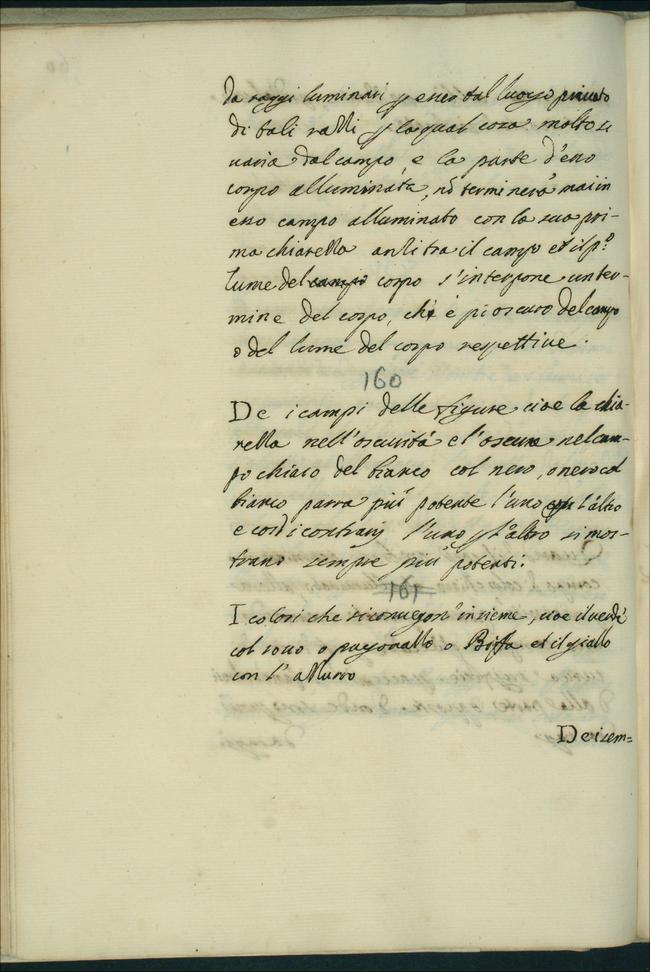 da raggi luminari p esser tal luogo privato
di tali razzi p laqual cosa molto si
varia dal campo, e la parte d'esso
corpo alluminata, nō terminerà mai in
esso campo alluminato con la sua pri-
ma chiarezza anzi tra il campo et il p.º
lume del campo corpo s'interpone un ter-
mine del corpo, ch'è è più oscuro del campo
o del lume del corpo respettive.
160
De i campi delle figure cioe la chia-
rezza nell'oscurità e l'oscura nel cam-
po chiaro del bianco col nero, o nero col
bianco parra più potente l'uno p l'altro
e così i contrarij l'uno p l'altro si mos-
trano sempre più potenti.
161
I colori che si convegon' insieme, cioe il verde
col rosso o pagonazzo o Biffa et il giallo
con l' azzurro
De i sem=